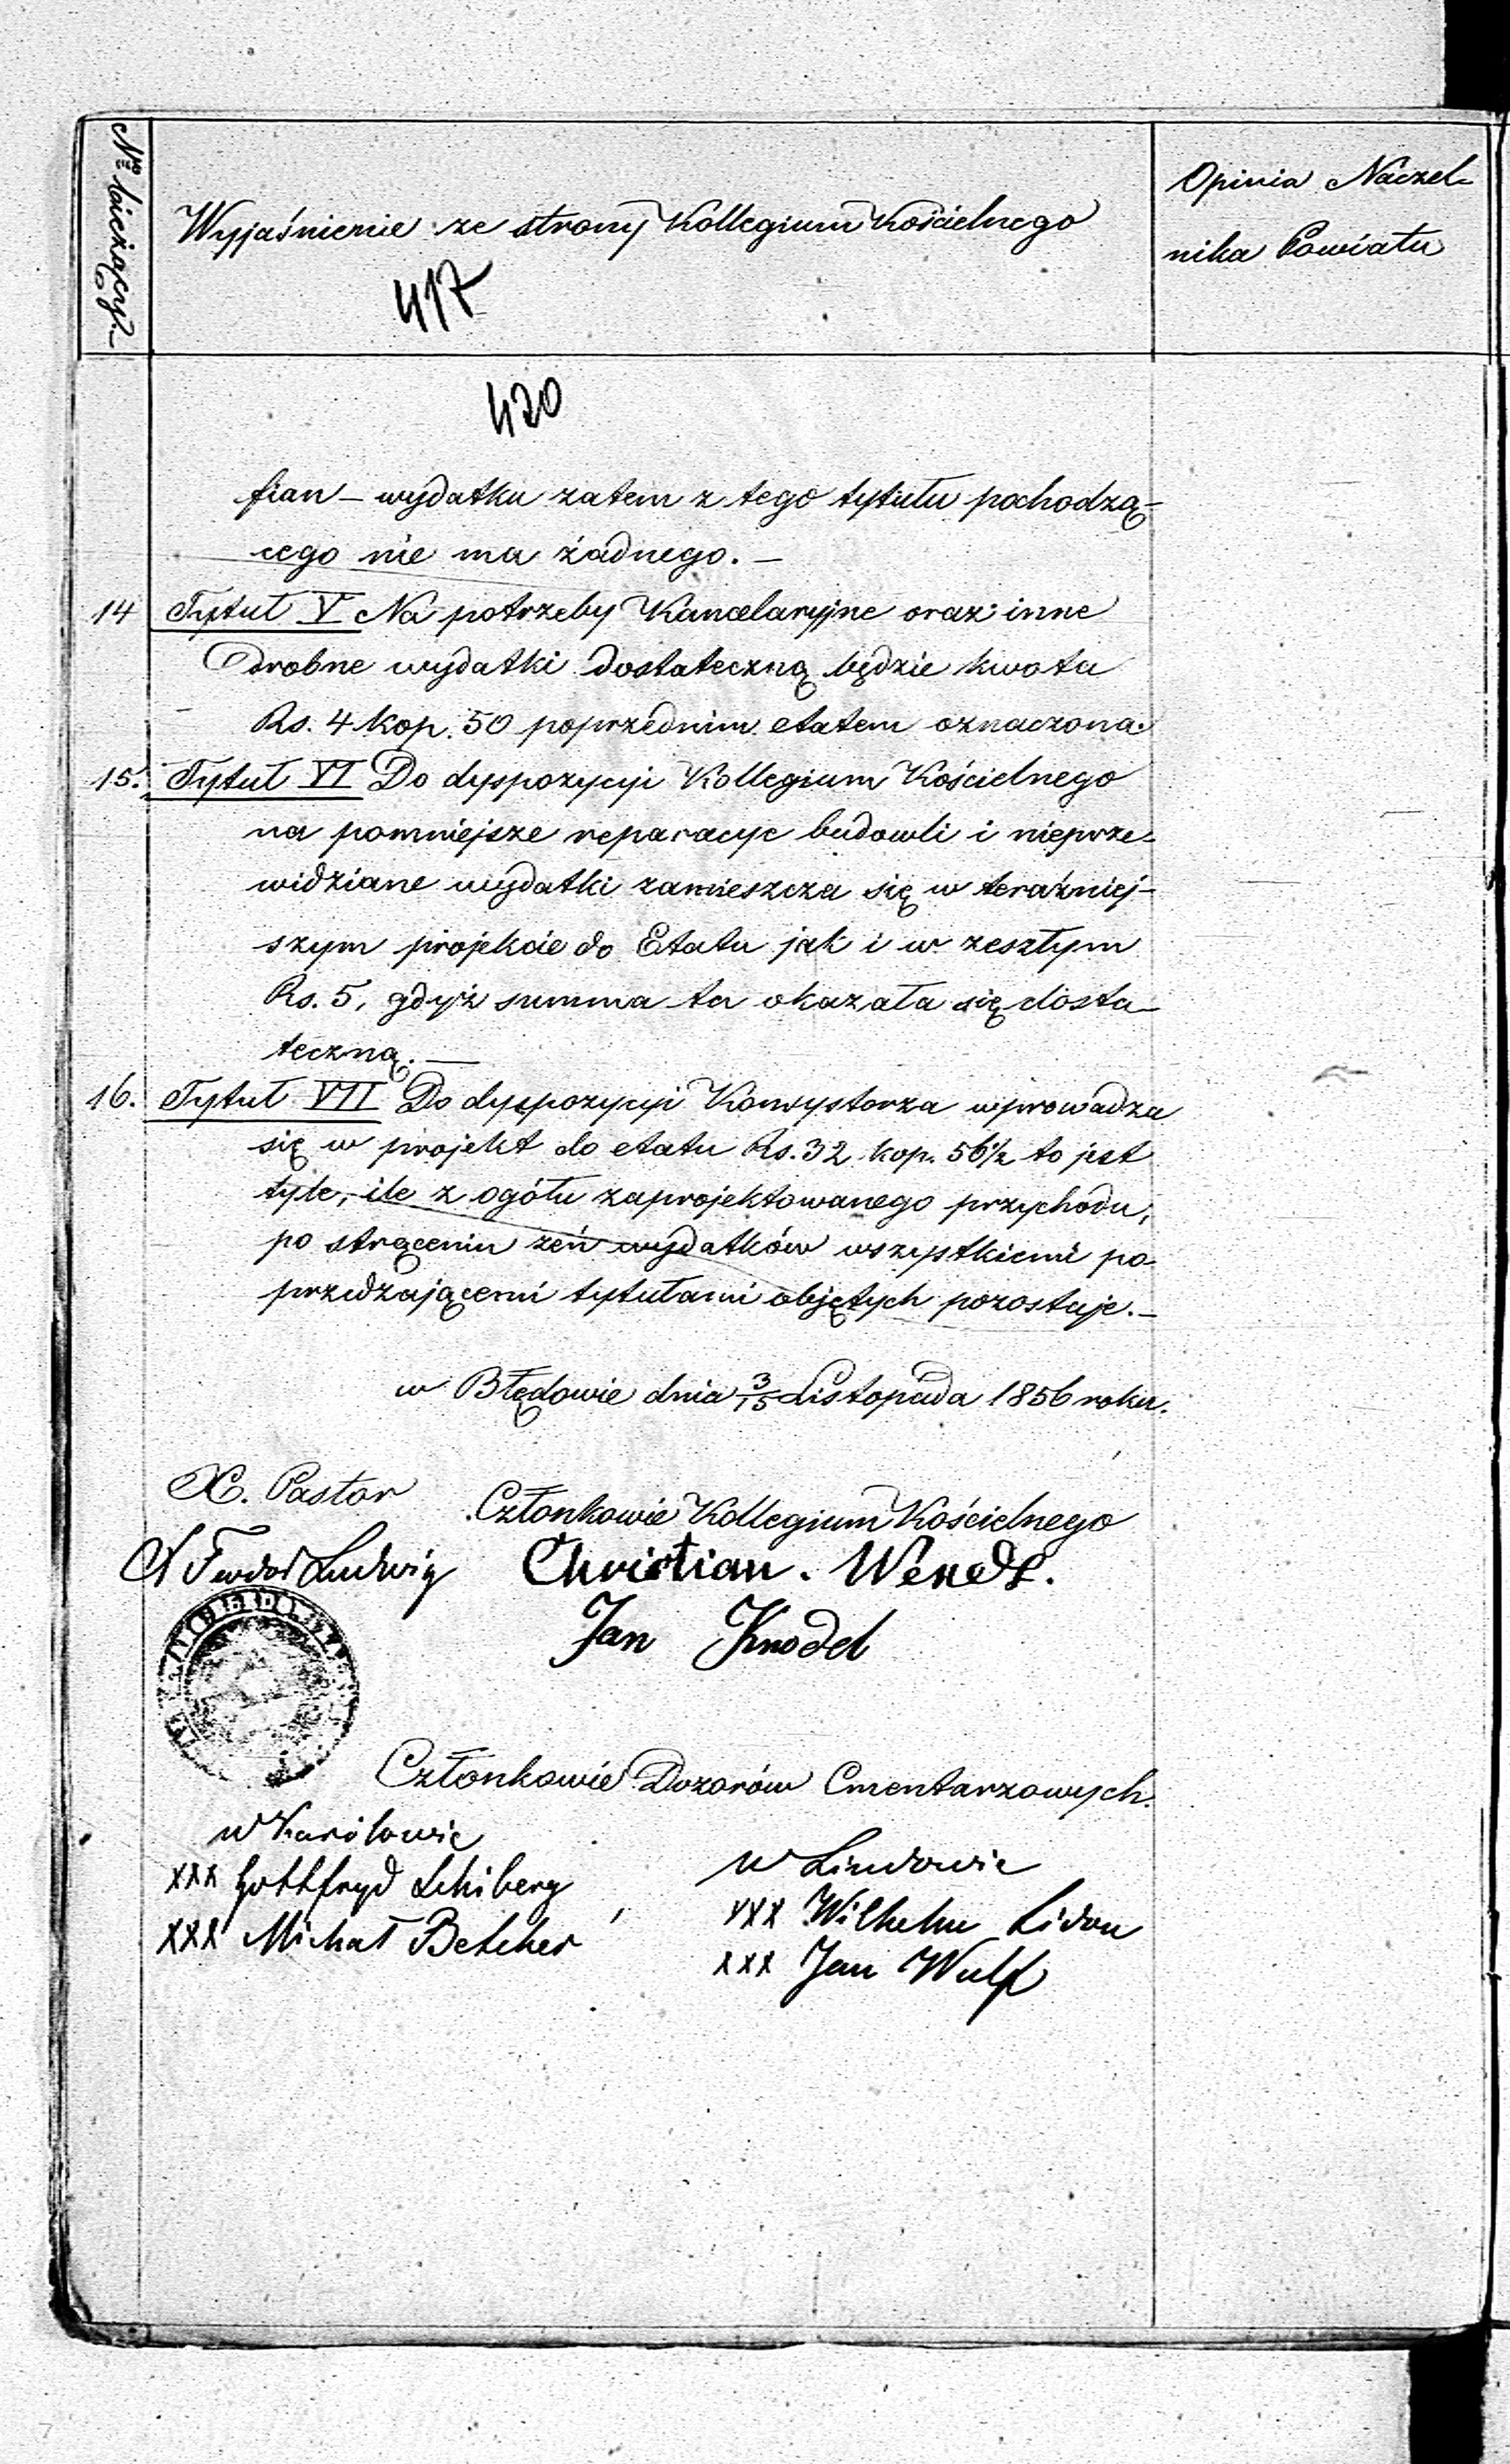 Nro bieżący.
Wyjaśnienie ze strony Kollegium Kościelnego
Opinia Naczel-
nika Powiatu
417
420
fian – wydatku zatem z tego tytułu pochodzą-
cego nie ma żadnego. –
14 Tytuł V Na potrzeby Kancelaryjne oraz inne
drobne wydatki dostateczną będzie kwota
Rs. 4 kop. 50 poprzednim etatem oznaczona.
15. Tytuł VI Do dyspozycyi Kollegium Kościelnego
na pomniejsze reparacye budowli i nieprze-
widziane wydatki zamieszcza się w teraźniej-
szym projekcie do Etatu jak i w zeszłym
Rs. 5, gdyż summa ta okazała się dosta-
teczną. —
16. Tytuł VII Do dyspozycyi Konsystorza wprowadza
się w projekt do etatu Rs. 32 kop. 56½ to jest
tyle, ile z ogółu zaprojektowanego przychodu,
po strąceniu zeń wydatków wszystkiemi po-
przedzającemi tytułami objętych pozostaje. –
w Błędowie dnia 3/15 Listopada 1856 roku.
X. Pastor
Członkowie Kollegium Kościelnego
Teodor Ludwig
Christian. Wendt.
Jan Knodel
Członkowie Dozorów Cmentarzowych.
w Karolowie
xxx Gottfryd Schiberg
xxx Michał Betcher
w Lindowie
xxx Wilhelm Lidon
xxx Jan Wulf